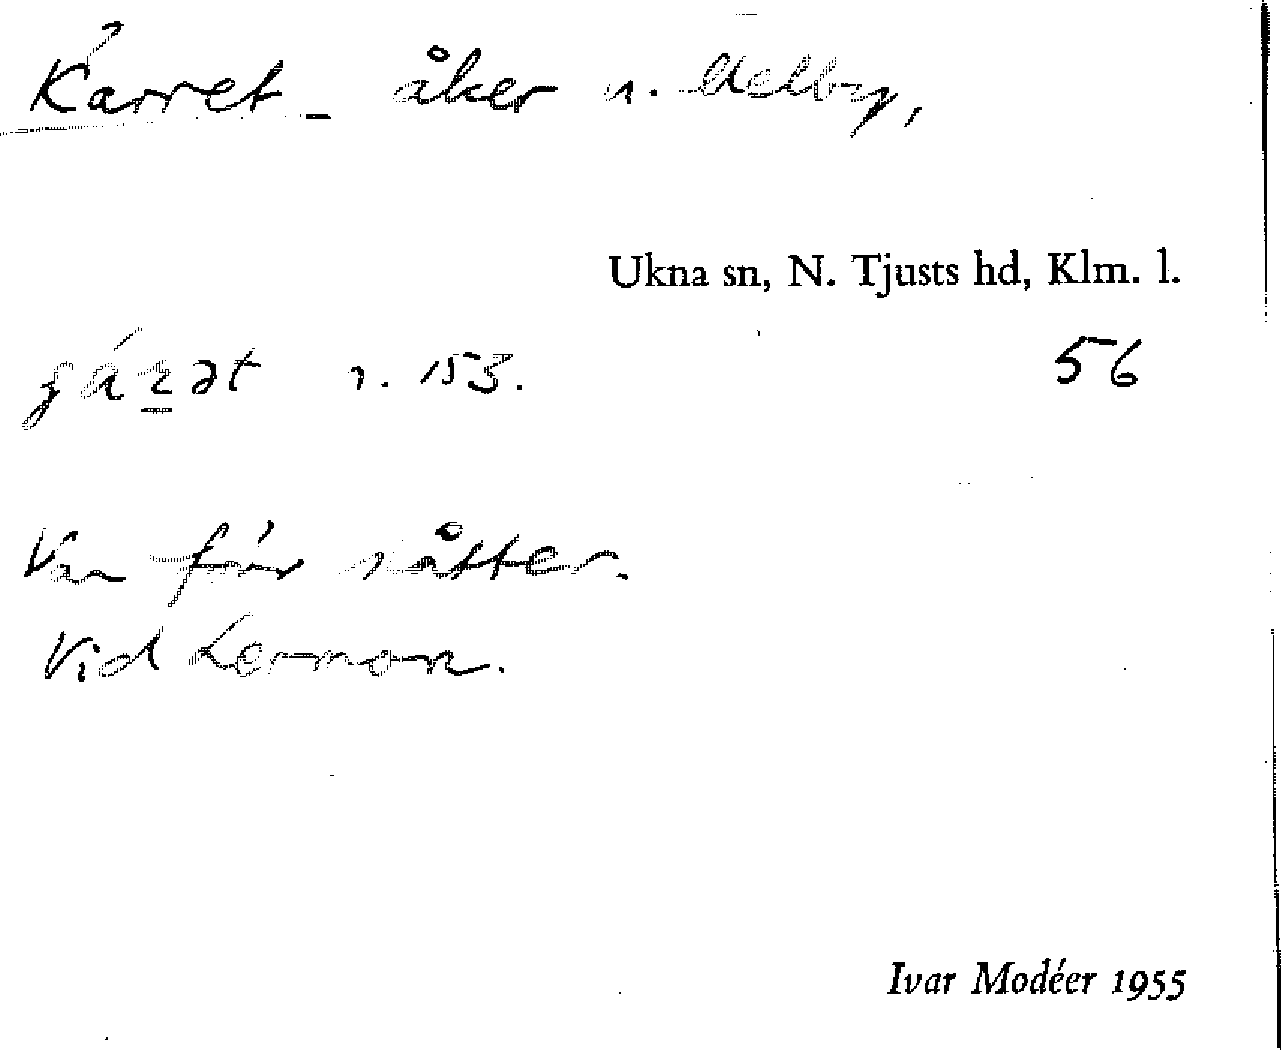 Kärret åker n. Melby,
Ukna sn, N. Tjusts hd, Klm. l.
r. 153. 56
Var förr slåtter.
Vid Lermon.
Ivar Modéer 1955